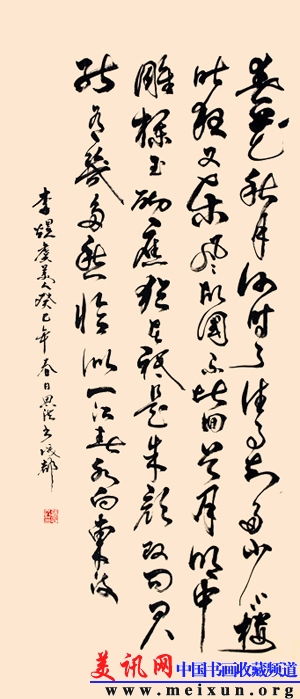 春花秋月何時了往事知多少小樓
昨夜又東風故國不堪回首月明中
雕欄玉砌應猶在祇是朱顏改問君
能有幾多愁恰似一江春水向東流
李煜虞美人癸巳年春日思書成都
美讯网 中国书画收藏频道
www.meixn.org